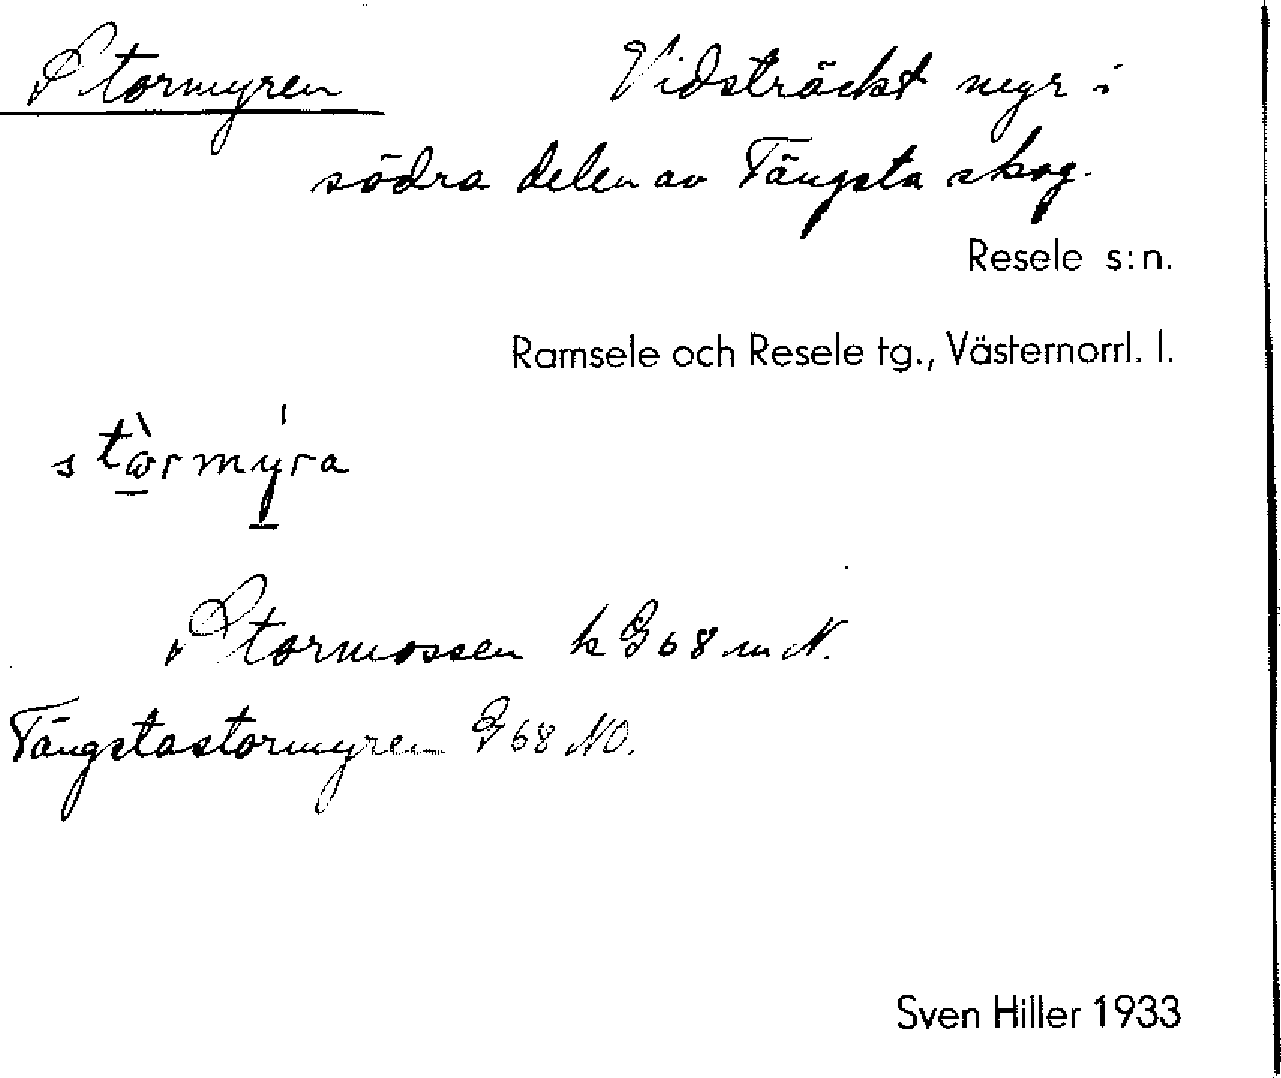 Stormyren Vidsträckt myr i
södra delen av Tängsta skog.
Resele s:n.
Ramsele och Resele tg., Västernorrl. l.
stòrmýra
Stormossen k G 68 m N.
Tängstastormyren G 68 NO.
Sven Hiller 1933